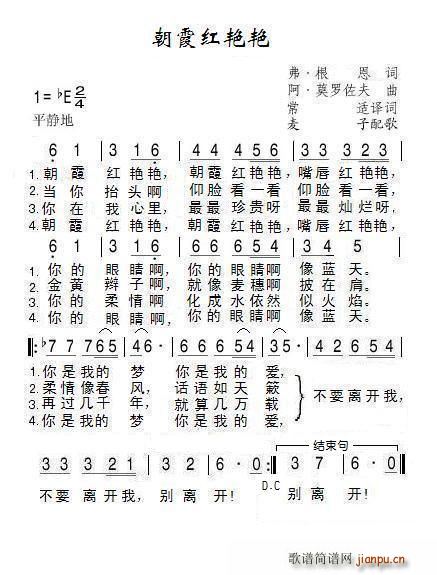 朝霞红艳艳
弗·根 恩 词
阿·莫罗佐夫 曲
常 适译词
麦 子配歌
1=♭E 2/4
平静地
6 1 | 3 1 6 | 4 4 4 5 6 | 3 3 3 2 3 |
1. 朝 霞 红 艳艳, 朝霞 红艳艳, 嘴唇 红艳艳,
2. 当 你 抬 头啊 仰脸 看一看 仰脸 看一看,
3. 你 在 我 心里, 最最 珍贵呀 最最 灿烂呀,
4. 朝 霞 红 艳艳, 朝霞 红艳艳, 嘴唇 红艳艳,
6 0 1 | 3 1 6 | 4 4 4 5 6 | 3 4 5 |
1. 你 的 眼 睛啊, 你的 眼睛啊 像 蓝 天。
2. 金 黄 辫 子啊, 就像 麦穗啊 披 在 肩。
3. 你 的 柔 情啊 化成 水依然 似 火 焰。
4. 你 的 眼 睛啊, 你的 眼睛啊 像 蓝 天。
1. 你是我的 梦 你是我的 爱,
2. 柔情像春 风, 话语如天 籁
3. 再过几千 年, 就算几万 载
4. 你是我的 梦 你是我的 爱,
不 要 离 开 我,
结束句
3 3 3 2 1 | 3 — | 3 1 2 | 6· 0 :| 3 7 | 6· 0 ‖
D.C
不 要 离 开 我, 别 离 开! 别 离 开!
歌谱简谱网
jianpu.cn